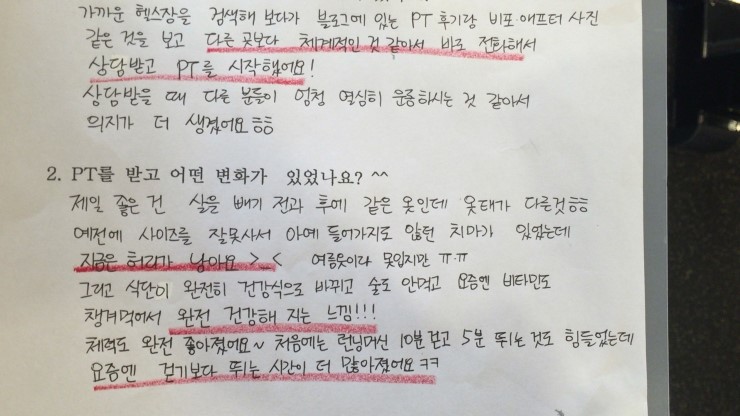 가까운 헬스장을 검색해 보다가 블로그에 있는 PT 후기랑 비포.애프터 사진
같은 것을 보고 다른 곳보다 체계적인 것 같아서 바로 전화해서
상담받고 PT를 시작했어요!
상담받을 때 다른 분들이 엄청 열심히 운동하시는 것 같아서
의지가 더 생겼어요 ㅎㅎ
2. PT를 받고 어떤 변화가 있었나요? ^^
제일 좋은 건 살을 빼기 전과 후에 같은 옷인데 옷태가 다른것 ㅎㅎ
예전에 사이즈를 잘못사서 아예 들어가지도 않던 치마가 있었는데
지금은 허리가 남아요 >_< 여름옷이라 못입지만 ㅠ.ㅠ
그리고 식단이 완전히 건강식으로 바뀌고 술도 안먹고 요즘엔 비타민도
챙겨먹어서 완전 건강해 지는 느낌!!!
체력도 완전 좋아졌어요~ 처음에는 런닝머신 10분 걷고 5분 뛰는것도 힘들었는데
요즘엔 걷기보다 뛰는 시간이 더 많아졌어요 ㅋㅋ